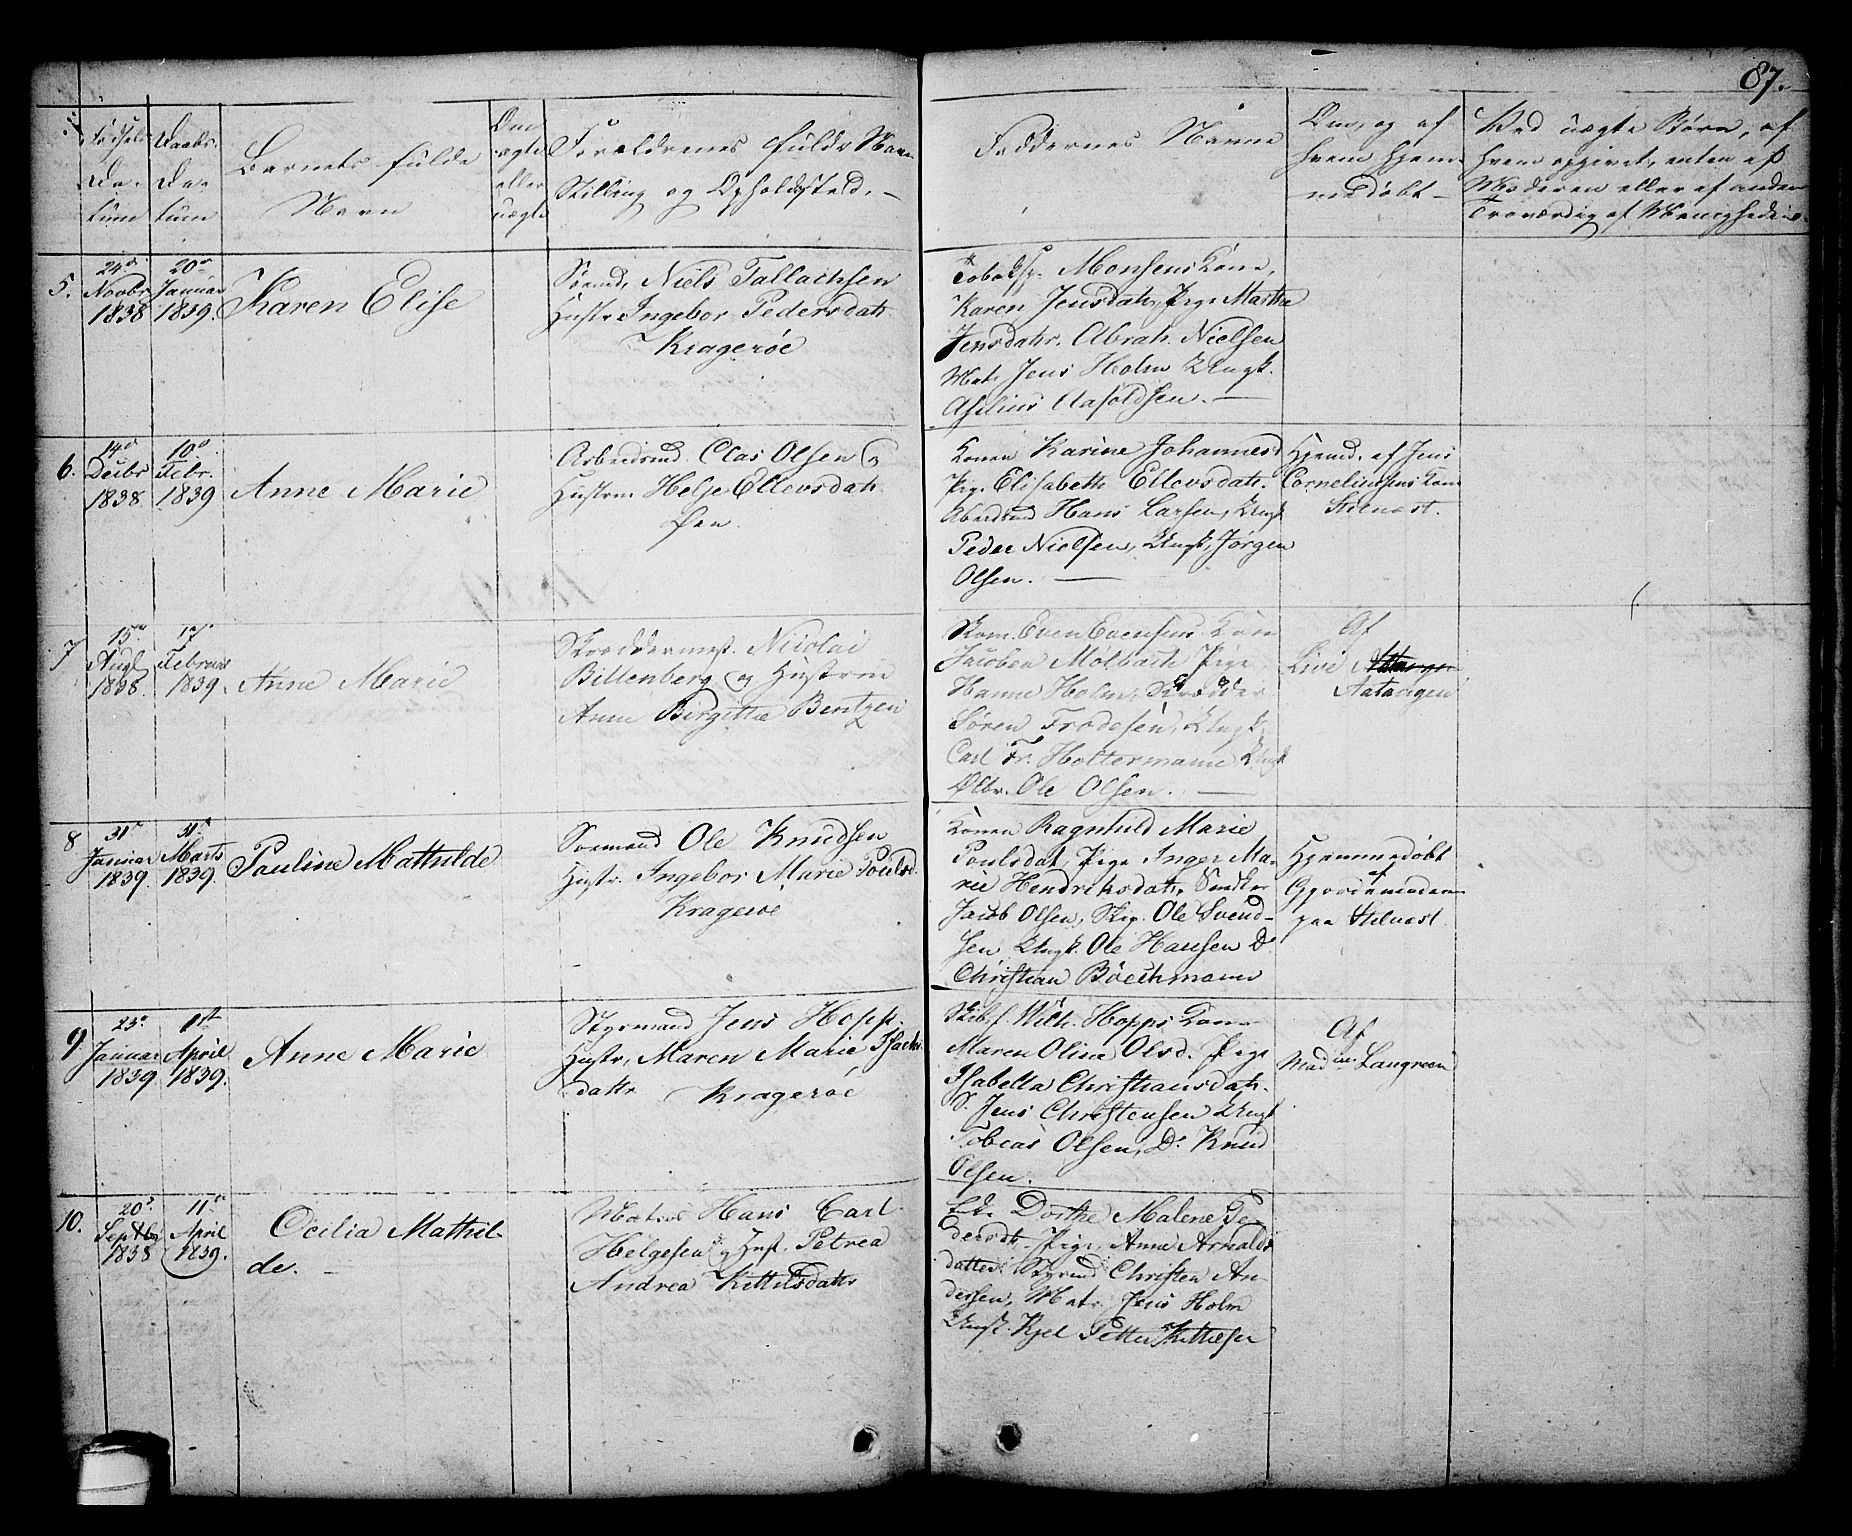 87.
Fødsels
Da-
tum
Daabs
Da-
tum
Barnets fulde
Navn
Om
ægte
eller
uægte
Forældrenes fulde Navn
Stilling og Opholdssted. -
Faddernes Navne
Om, og af
hvem hjem-
medøbt -
Ved uægte Børn, af
hvem opgivet, enten af
Moderen eller af anden
Troværdig af Menigheden.
5.
24de
Novbr
1838
20de
Januar
1839.
Karen Elise
Sømd. Niels Tallachsen
Hustr. Ingebor Pedersdatr
Kragerøe
Monsens Kone,
Karen Jensdatr, Pige Marthe
Jensdatr. Abrah. Nielsen
Matr. Jens Holm Ungk.
Aslak Aasoldsen. -
6.
14de
Decbr
1838.
10de
Febr.
1839
Anne Marie
Arbeidsmd Clas Olsen og
Hustru Helje Ellevsdatr
Øen.
Konen Karine Johannesd
Pig. Elisabeth Ellevsdatr.
Abeidsmd Hans Larsen, Ungk
Peder Nielsen, Ungk, Jørgen
Olsen. -
Hjemd. af Jens
Corneliusens Kone
Stilnæst.
7
15de
Augst
1838.
17de
Februar
1839
Anne Marie
Skræddermest. Nicolai
Billenberg og Hustrue
Anne Birgitte Bentzen
Skom. Even Evensens Kone
Jacoben Molbach Pige
Hanne Holm, Skrædder
Søren Frodesen, Ungk.
Carl Fr. Holtermann Ungk
Ole Olsen. -
Af
Live
Aatangen
8
31te
Januar
1839.
31te
Marts
1839.
Pauline Mathilde
Sømand Ole Knudsen
Hustr. Ingebor Marie Poulsd.
Kragerøe
Konen Ragnhild Marie
Poulsdat, Pige Inger Ma-
rie Hendriksdatr, Snedker
Jacob Olsen, Skip. Ole Svend-
sen Ungk. Ole Hansen Do
Christian Böechmann
Hjemmedøbt
af
Gjordemoderen
paa Stilnæst
9
23de
Januar
1839
1ste
April
1839.
Anne Marie
Styrmand Jens Hopp.
Hustr, Maren Marie Isachs
datr Kragerøe
Skibsf. Wilh. Hopps Kone
Maren Oline Olsd. Pige
Isabella Christiansdatr.
S. Jens Christensen Ungk
Tobias Olsen, Do Knud
Olsen.
Af
Madme Langreen
10.
20de
Septbr
1838
11te
April
1839.
Cecilia Mathil-
de. -
Matros Hans Carl
Helgesen og Hust. Petrea
Andrea Kittilsdatr
Ek. Dorthe Malene Pe-
dersdt. Pige, Anne Arnolds
datter Styrmd Christen An-
dersen, Matr. Jens Holm
Ungk. Kjel Petter Kittilsen